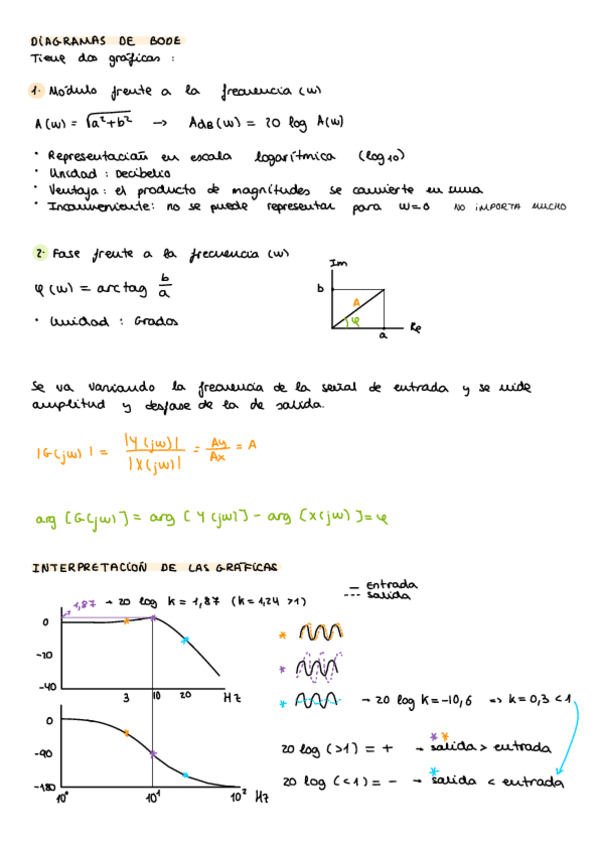 DIAGRAMAS DE BODE
Tiene dos gráficas :
1. Módulo frente a la frecuencia (w)
A(w) = √a²+b² → AdB(w) = 20 log A(w)
· Representación en escala logarítmica (log10)
· Unidad : Decibelio
· Ventaja : el producto de magnitudes se convierte en suma
· Inconveniente: no se puede representar para w=0 NO IMPORTA MUCHO
2. Fase frente a la frecuencia (w)
φ(w) = arctag b/a
· Unidad : Grados
Im
b
A
φ
a
Re
Se va variando la frecuencia de la señal de entrada y se mide
amplitud y desfase de la de salida.
|G(jw)| = |Y(jw)| / |X(jw)| = Ay / Ax = A
arg [G(jw)] = arg [Y(jw)] - arg [X(jw)] = φ
INTERPRETACIÓN DE LAS GRÁFICAS
— Entrada
--- Salida
1,87 → 20 log k = 1,87 (k = 1,24 >1)
0
-20
-40
3 10 20 Hz
* → 20 log k = -10,6 => k = 0,3 < 1
0
-90
-180
10⁰ 10¹ 10² Hz
20 log (>1) = + → salida > entrada
20 log (<1) = - → salida < entrada